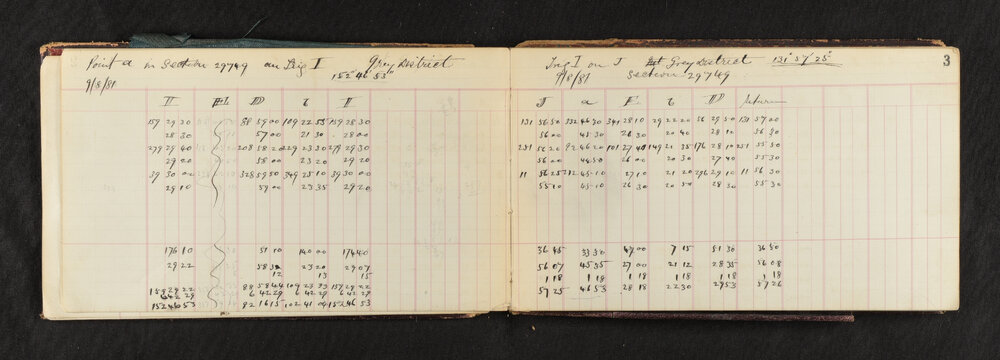 Point a in Section 29749 on Trig I Grey District
152° 46' 53"
9/8/81
II EL IID t II
159 29 30 88 59 00 109 22 55 159 28 30
28 30 57 00 21 30 28 00
279 29 40 208 58 20 229 23 30 279 29 30
29 20 58 00 23 20 29 20
39 30 00 328 59 50 349 25 10 39 30 00
29 10 59 00 23 35 29 20
176 10 51 10 140 00 174 40
29 22 58 32 23 20 29 07
12 13 15
159 29 22 88 58 44 109 23 33 159 29 22
6 42 29 6 42 29 6 42 29 6 42 29
152 46 53 82 16 15 102 41 04 152 46 53
Trig I on J Grey District 131° 57' 25"
3
9/8/81 Section 29749
J a E t IID return
131 56 50 232 46 30 341 28 10 29 22 20 56 29 50 131 57 00
56 00 45 30 26 30 20 40 28 10 56 50
251 56 20 82 46 20 101 27 40 149 21 35 176 28 10 251 55 50
56 00 44 50 26 00 20 30 27 40 55 30
11 56 25 212 45 10 27 10 21 20 296 29 10 11 56 30
55 10 45 10 26 30 20 50 28 30 55 30
36 45 33 30 42 00 7 15 51 30 36 50
56 07 45 35 27 00 21 12 28 35 56 08
1 18 1 18 1 18 1 18 1 18 1 18
57 25 46 53 28 18 22 30 29 53 57 26